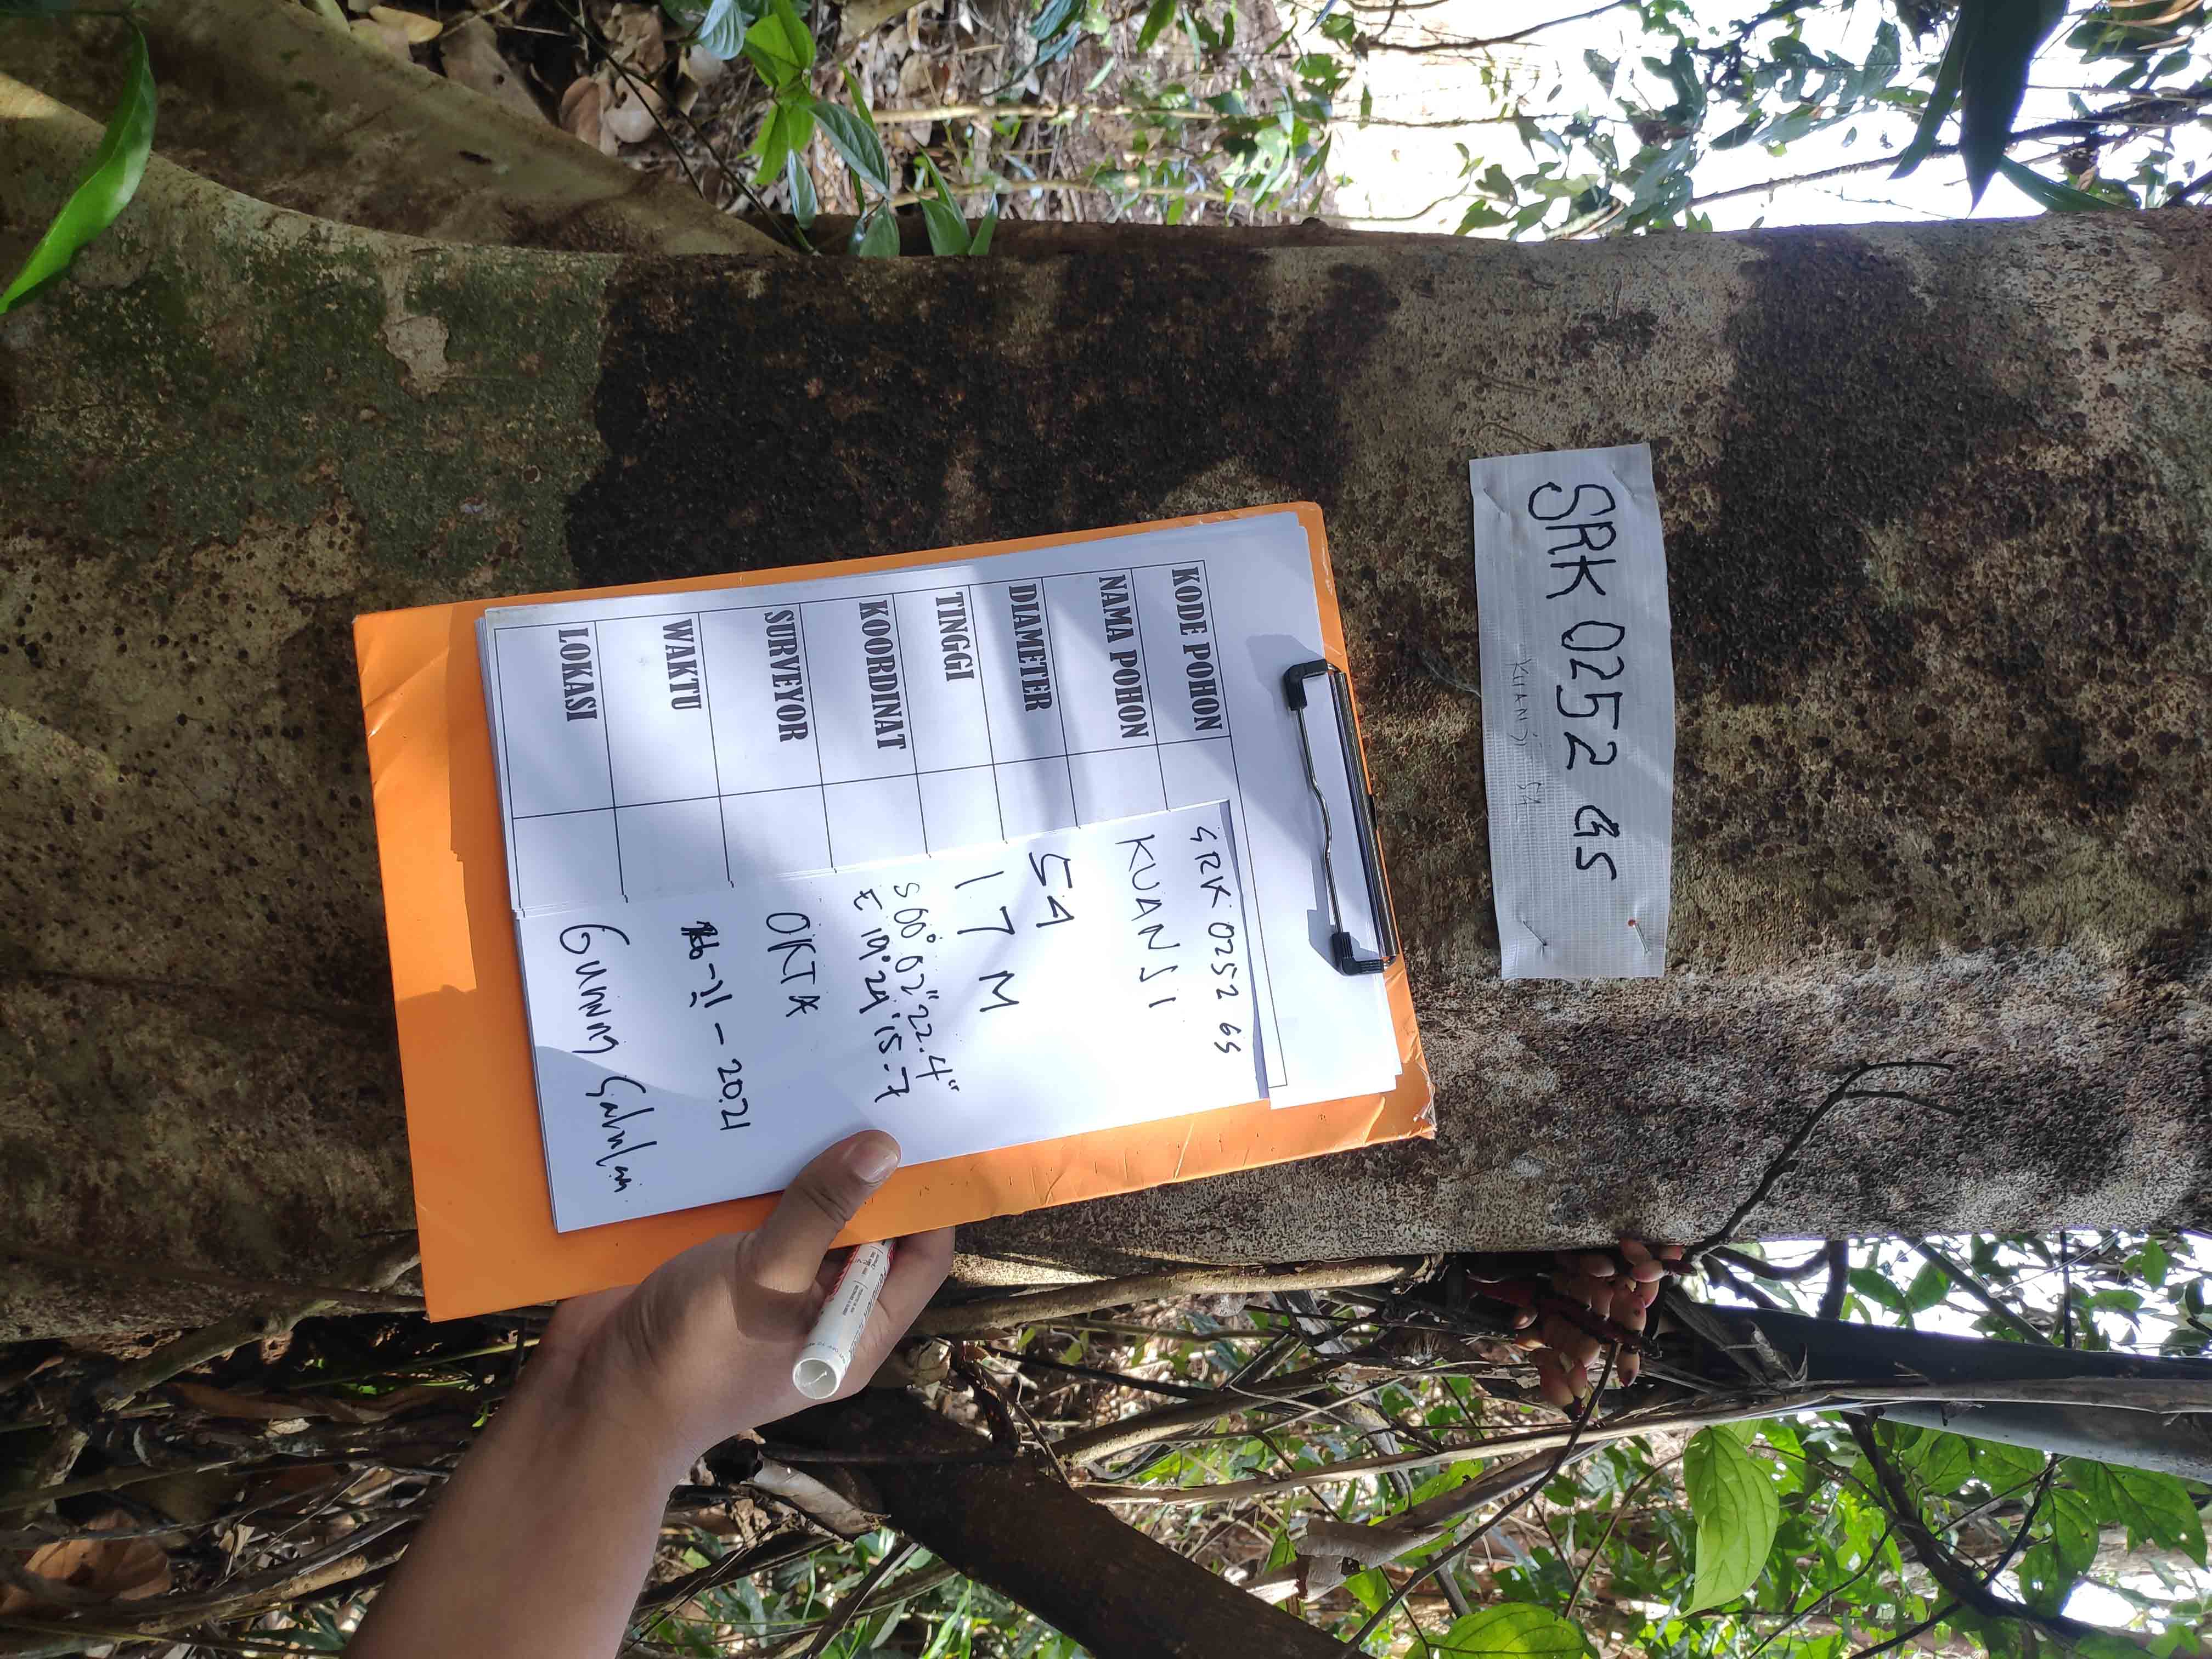 SRK 0252 GS
KUANSI 54
KODE POHON SRK 0252 GS
NAMA POHON KUANSI
DIAMETER 54
TINGGI 17 M
KOORDINAT S 00° 02" 22.4"
E 19° 24' 15.7
SURVEYOR OKTA
WAKTU 16-11-2021
LOKASI Gunung